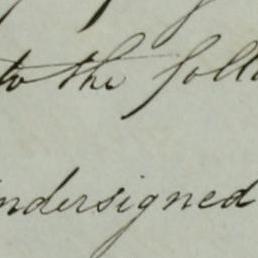 to the foll
ndersigned